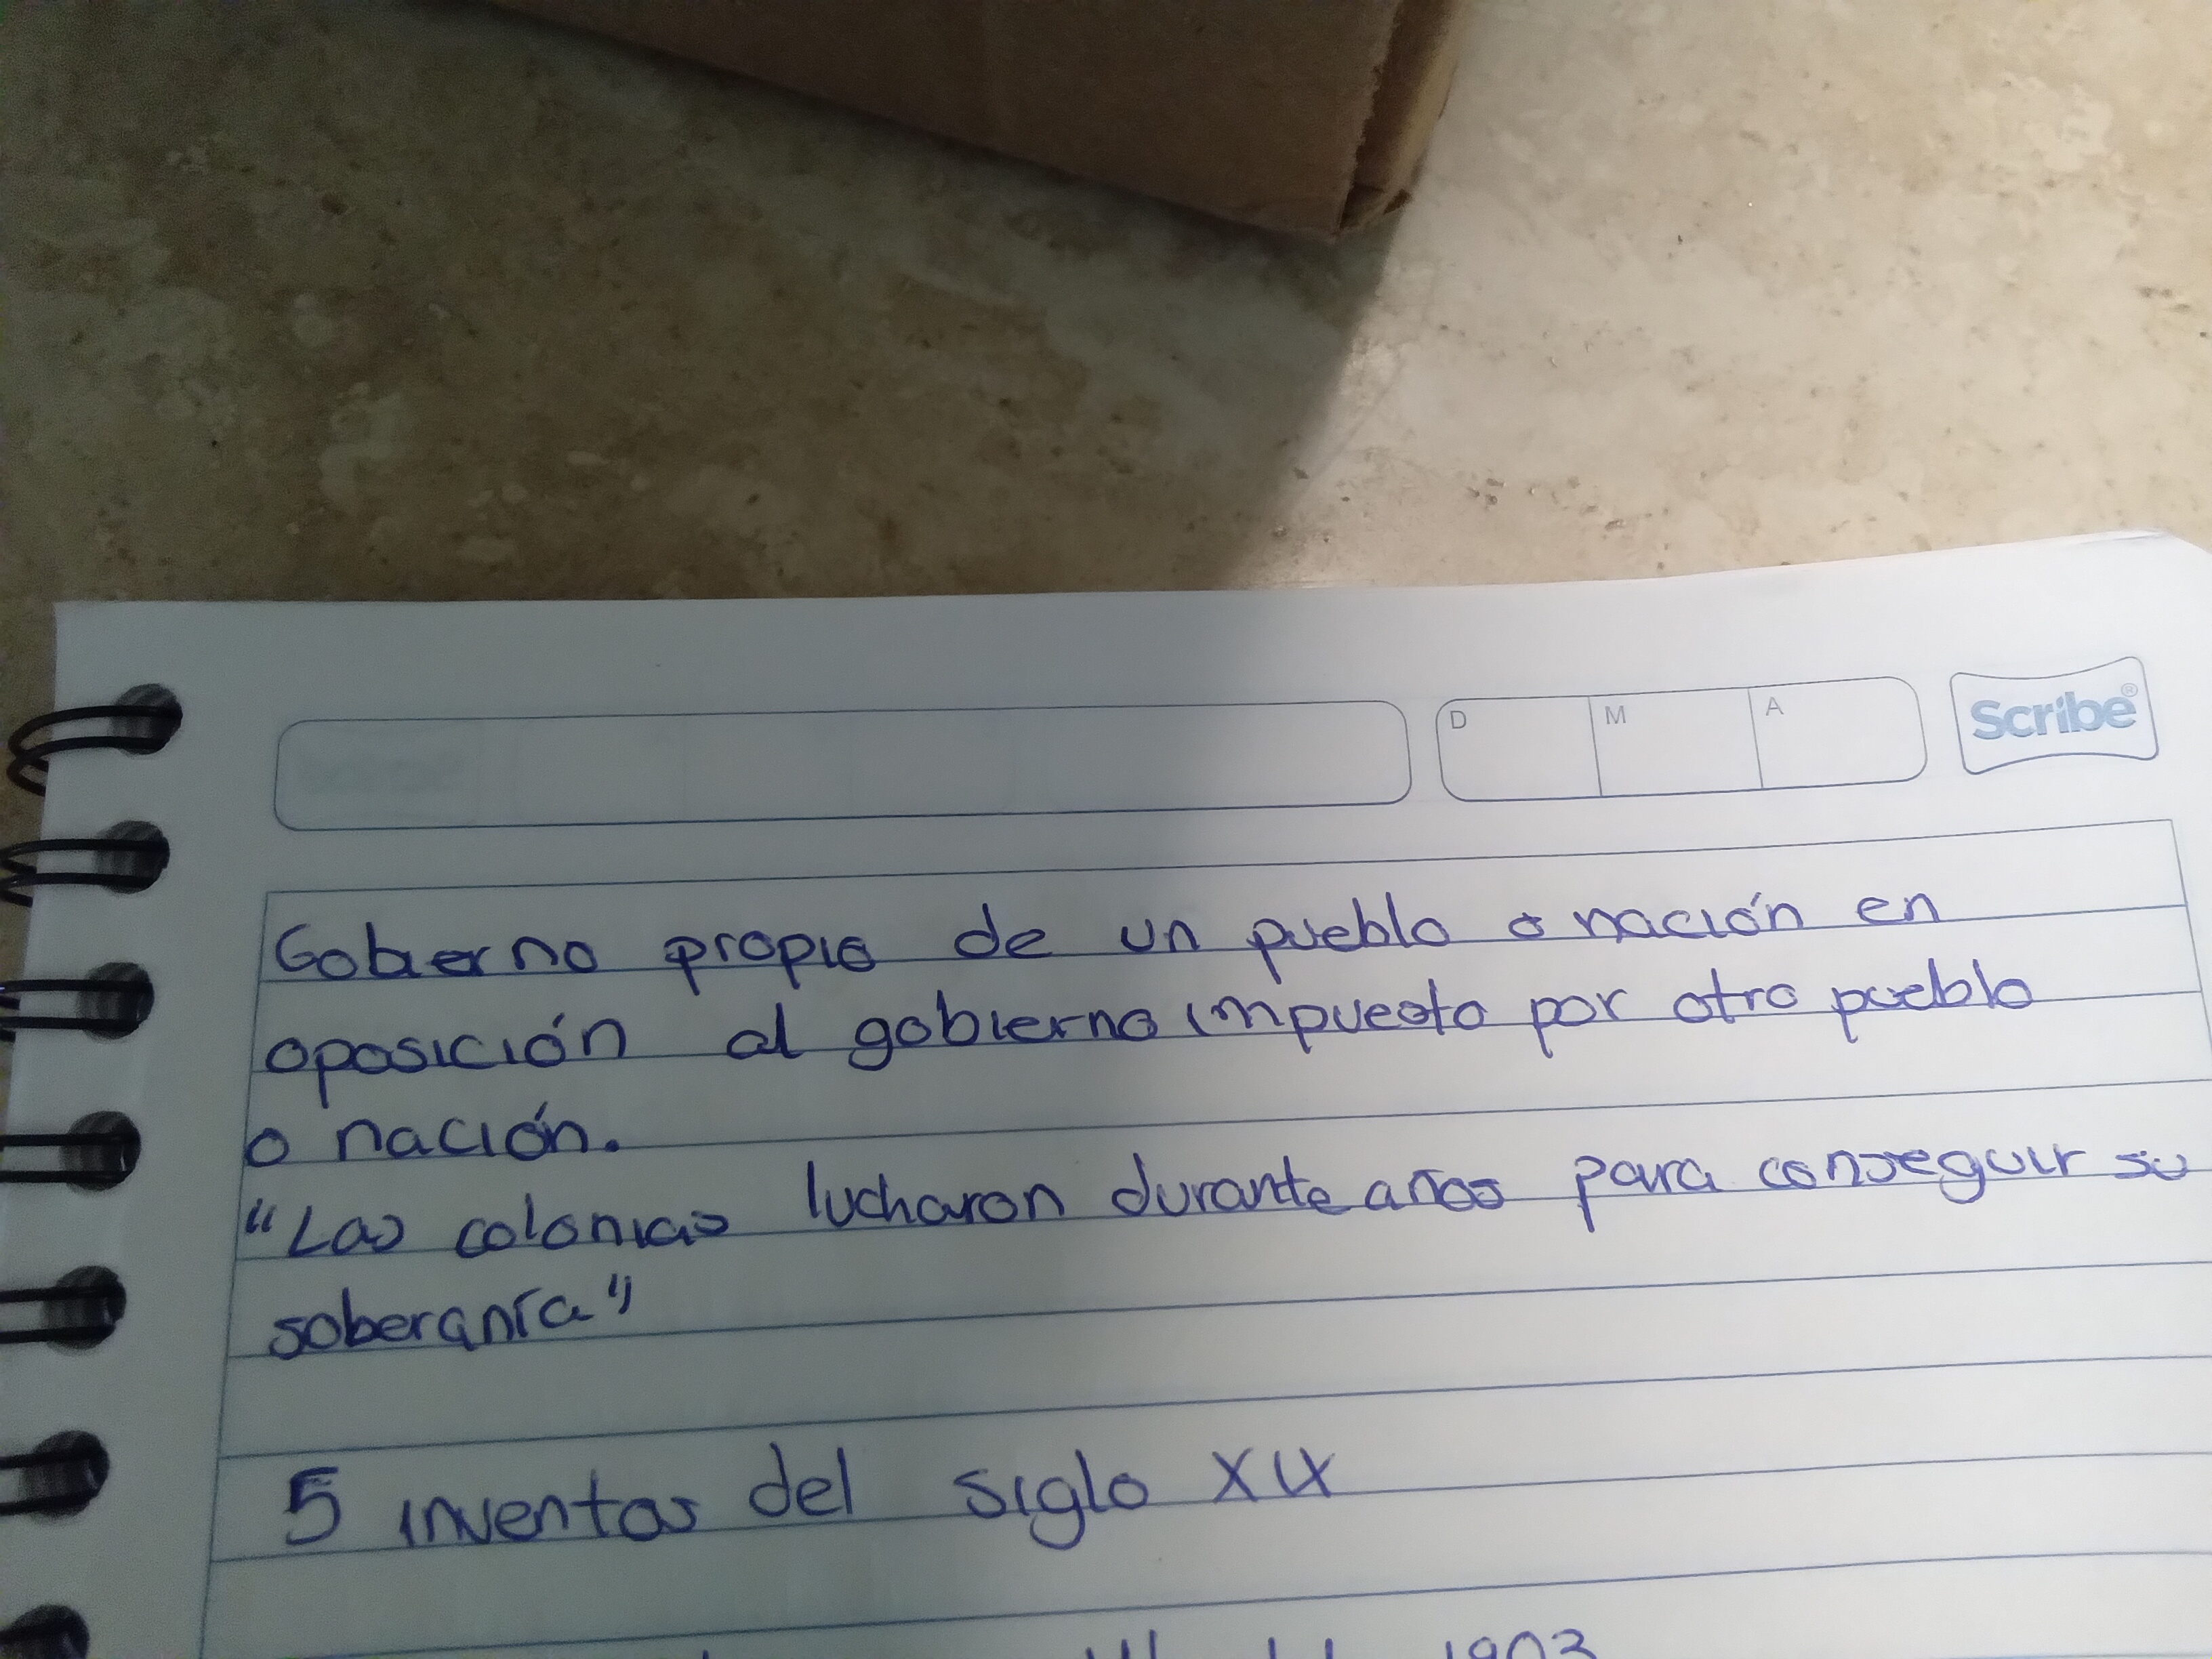 D M A Scribe®
Gobierno propio de un pueblo o nación en
oposición al gobierno impuesto por otro pueblo
o nación.
"Las colonias lucharon durante años para conseguir su
soberanía"
5 inventos del siglo XIX
1903